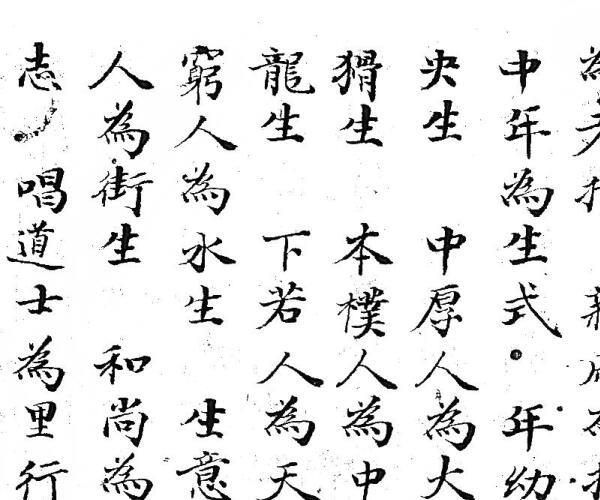 中年為生式。年幼
央生 中厚人為大
猾生 本樸人為中
龍生 下若人為天
窮人為水生 生意
人為街生 和尚為
志 唱道士為里行